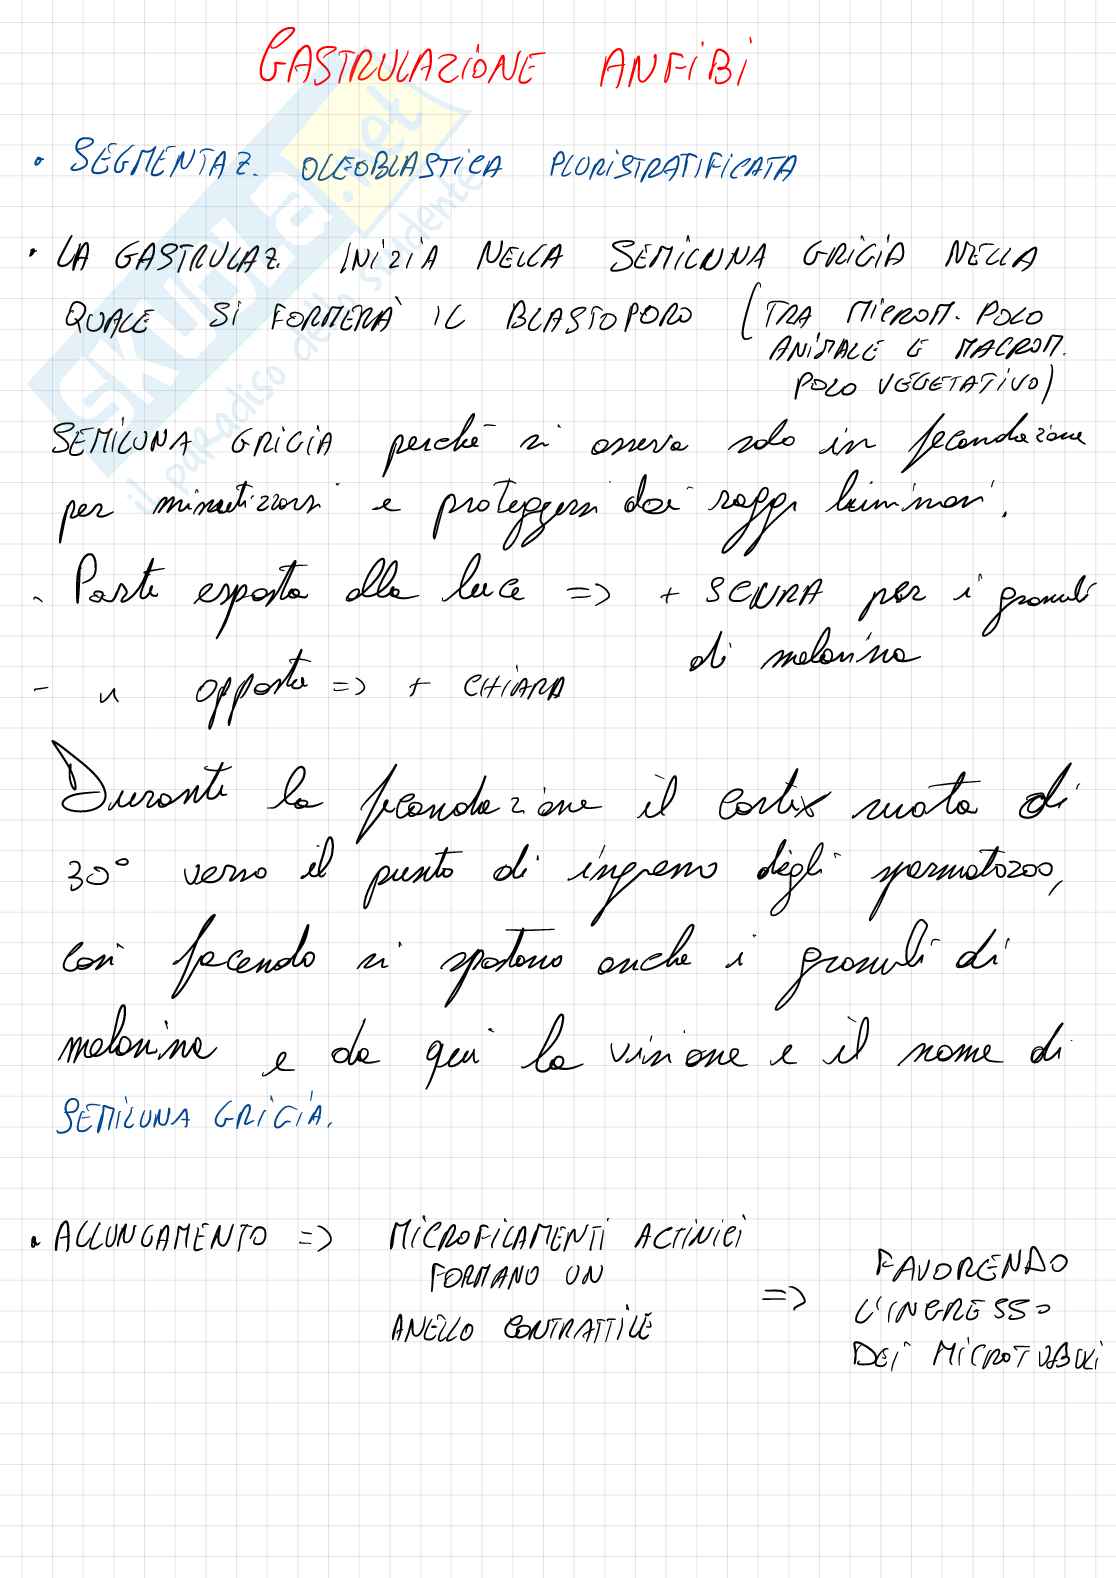 GASTRULAZIONE ANFIBI
• SEGMENTAZ. OLEOBLASTICA PLURISTRATIFICATA
• LA GASTRULAZ. INIZIA NELLA SEMILUNA GRIGIA NELLA
QUALE SI FORMERÀ IL BLASTOPORO (TRA MICROM. POLO
ANIMALE E MACROM.
POLO VEGETATIVO)
SEMILUNA GRIGIA perché si osserva solo in fecondazione
per mimetizzarsi e proteggersi dai raggi luminosi.
- Parte esposta alla luce => + SCURA per i granuli
di melanina
- " opposta => + CHIARA
Durante la fecondazione il cortex ruota di
30° verso il punto di ingresso degli spermatozoo,
così facendo si spostano anche i granuli di
melanina e da qui la visione e il nome di
SEMILUNA GRIGIA.
• ALLUNGAMENTO => MICROFILAMENTI ACTINICI
FORMANO UN
ANELLO CONTRATTILE
=> FAVORENDO
L'INGRESSO
DEI MICROTUBULI
SKUOLA.net
il paradiso dello studente